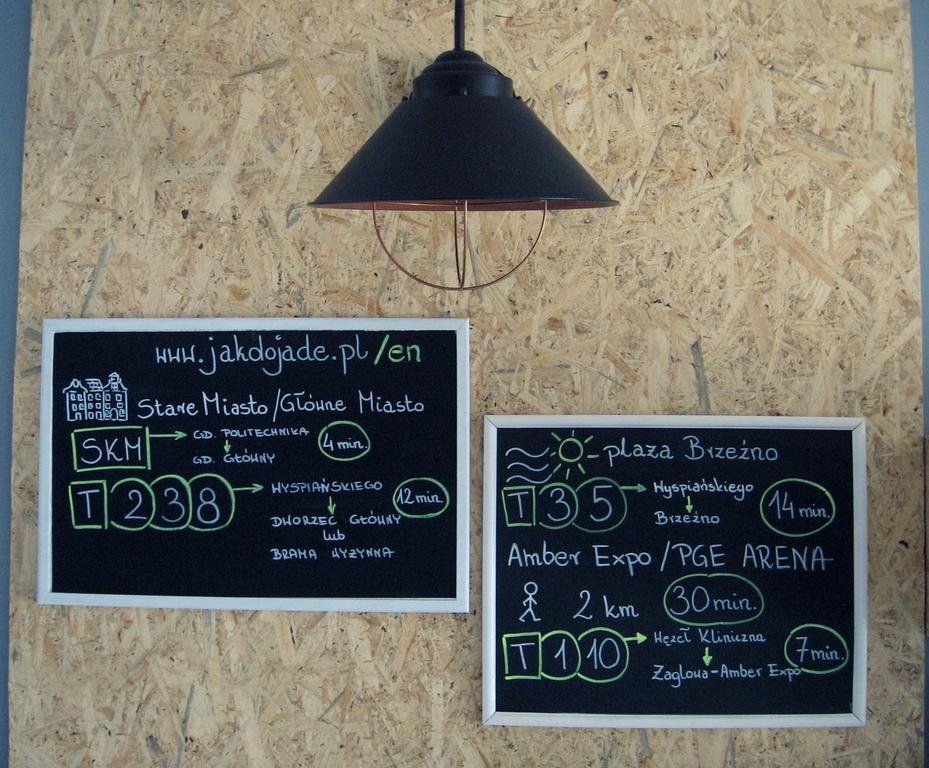 www.jakdojade.pl/en
Stare Miasto/Główne Miasto
SKM → GD. POLITECHNIKA 4 min.
↓
GD. GŁÓWNY
T 2 3 8 → WYSPIAŃSKIEGO 12 min.
↓
DWORZEC GŁÓWNY
lub
BRAMA WYŻYNNA
plaża Brzeźno
T 3 5 → Wyspiańskiego 14 min.
↓
Brzeźno
Amber Expo/PGE ARENA
2 km 30 min.
T 1 10 → Węzeł Kliniczna 7 min.
↓
Żaglowa-Amber Expo